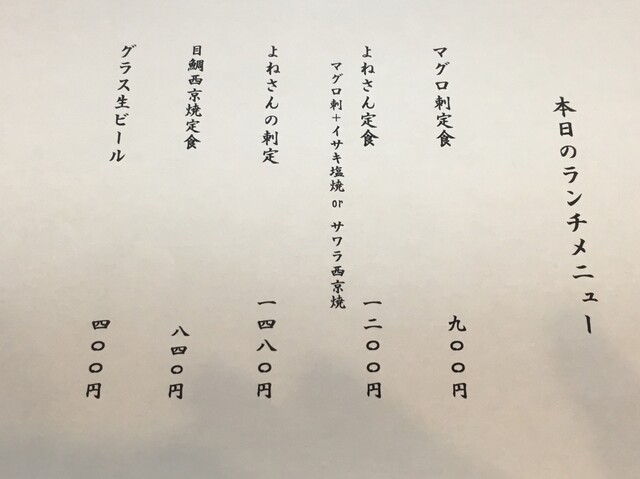 本日のランチメニュー
マグロ刺定食 九〇〇円
よねさん定食 一二〇〇円
マグロ刺+イサキ塩焼 or サワラ西京焼
よねさんの刺定 一四八〇円
目鯛西京焼定食 八四〇円
グラス生ビール 四〇〇円